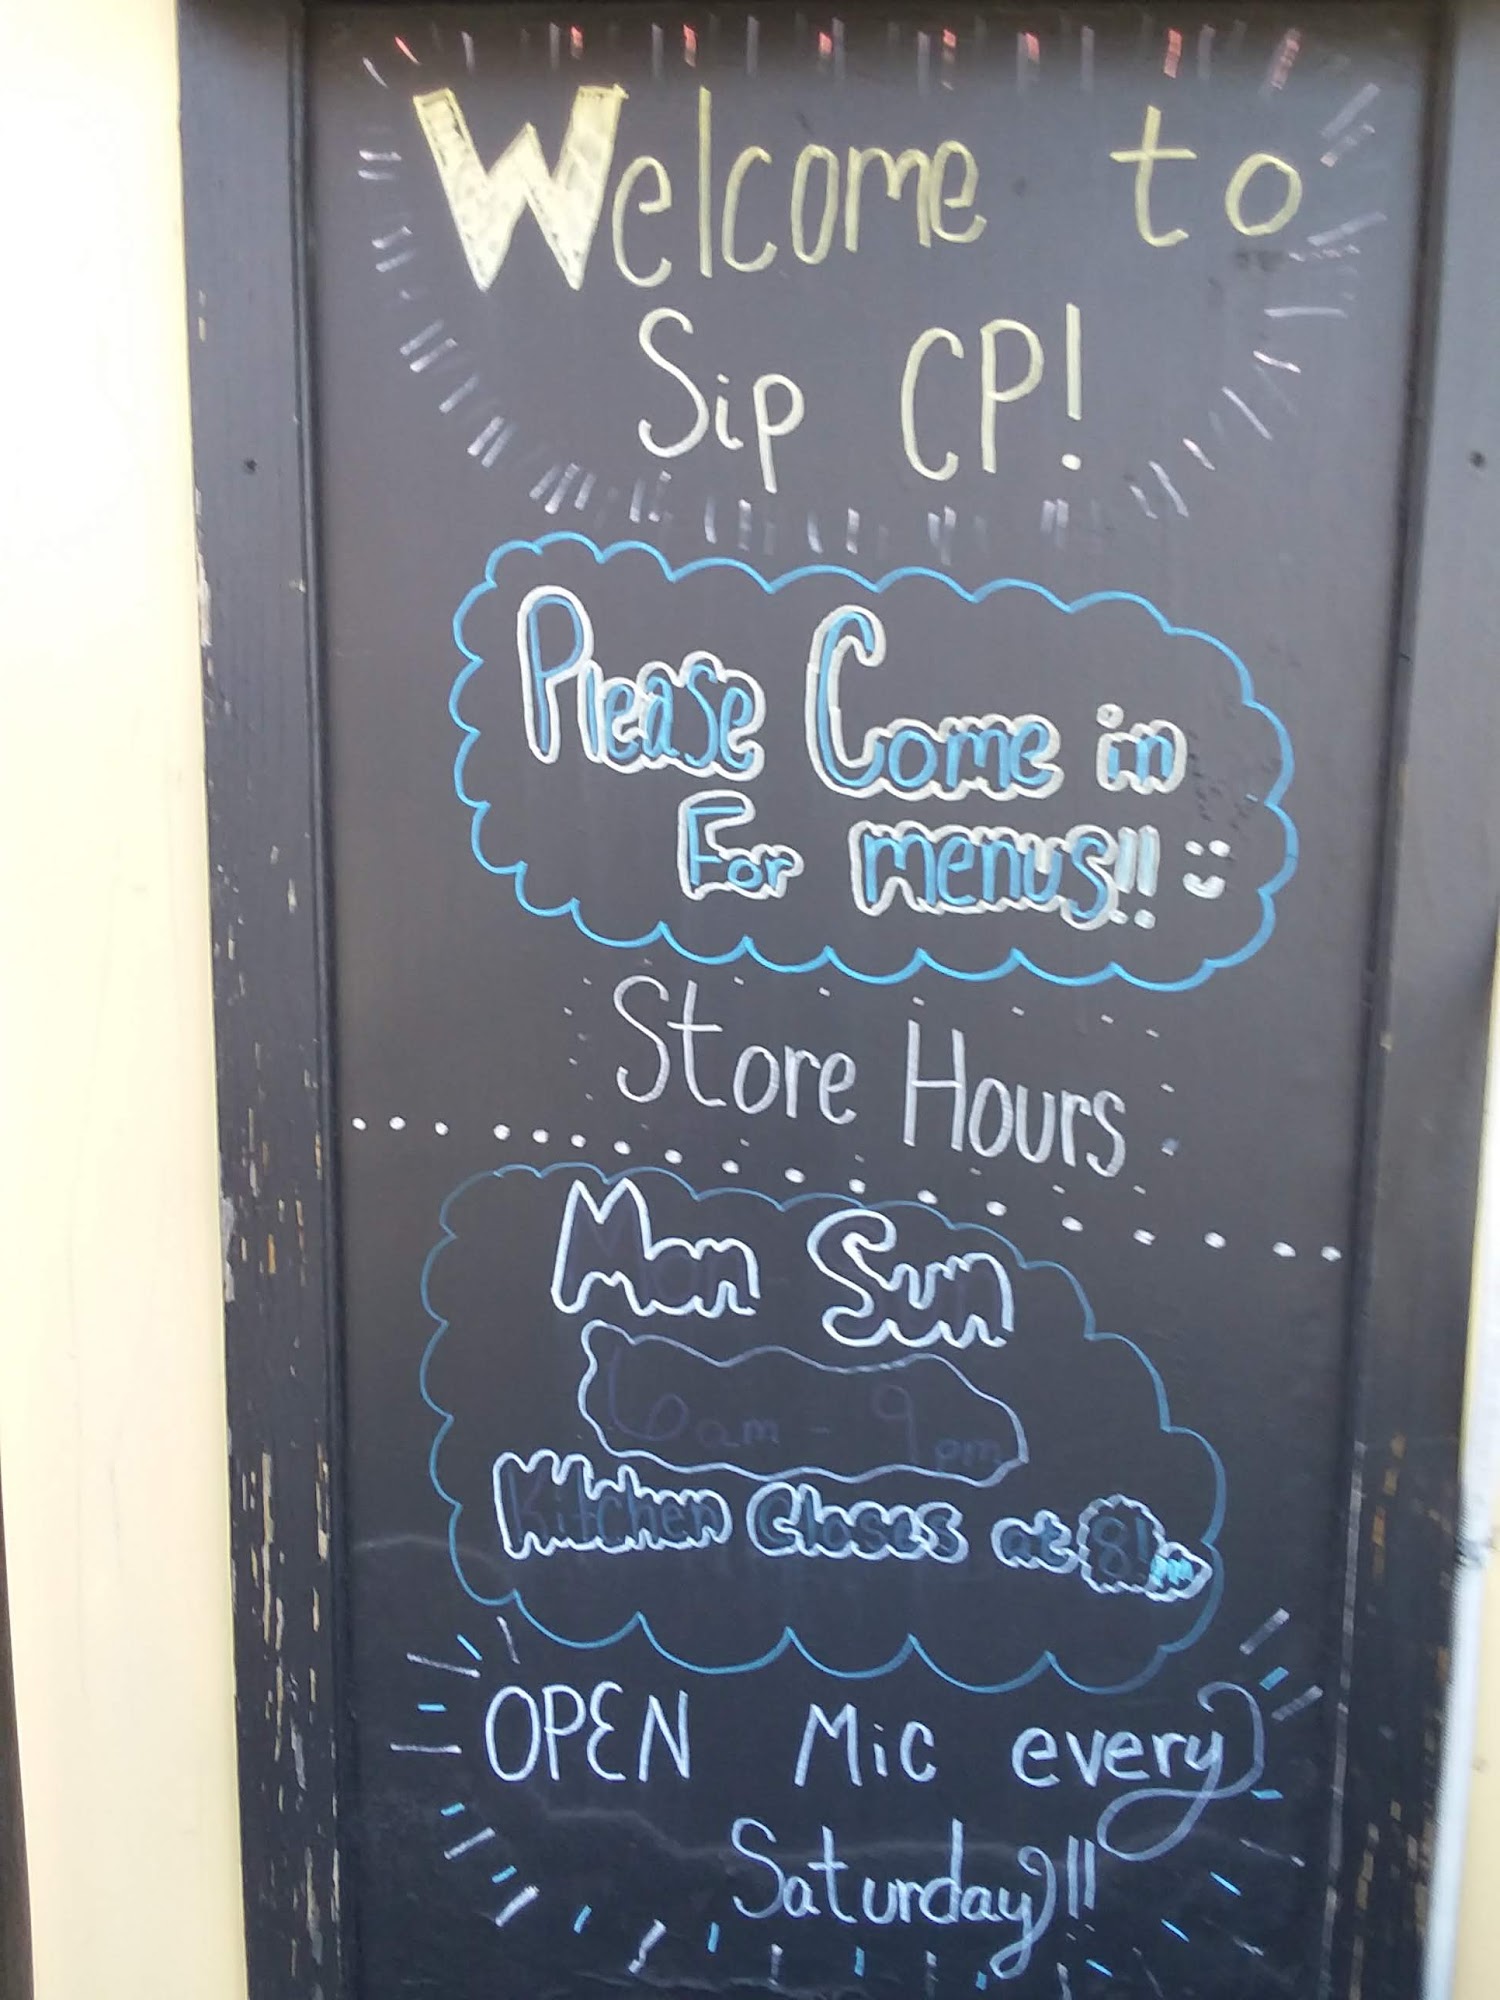 Welcome to
Sip CP!
Please Come in
For menus!! :)
Store Hours
Mon Sun
6am - 9pm
Kitchen Closes at 8!pm
OPEN Mic every
Saturday!!